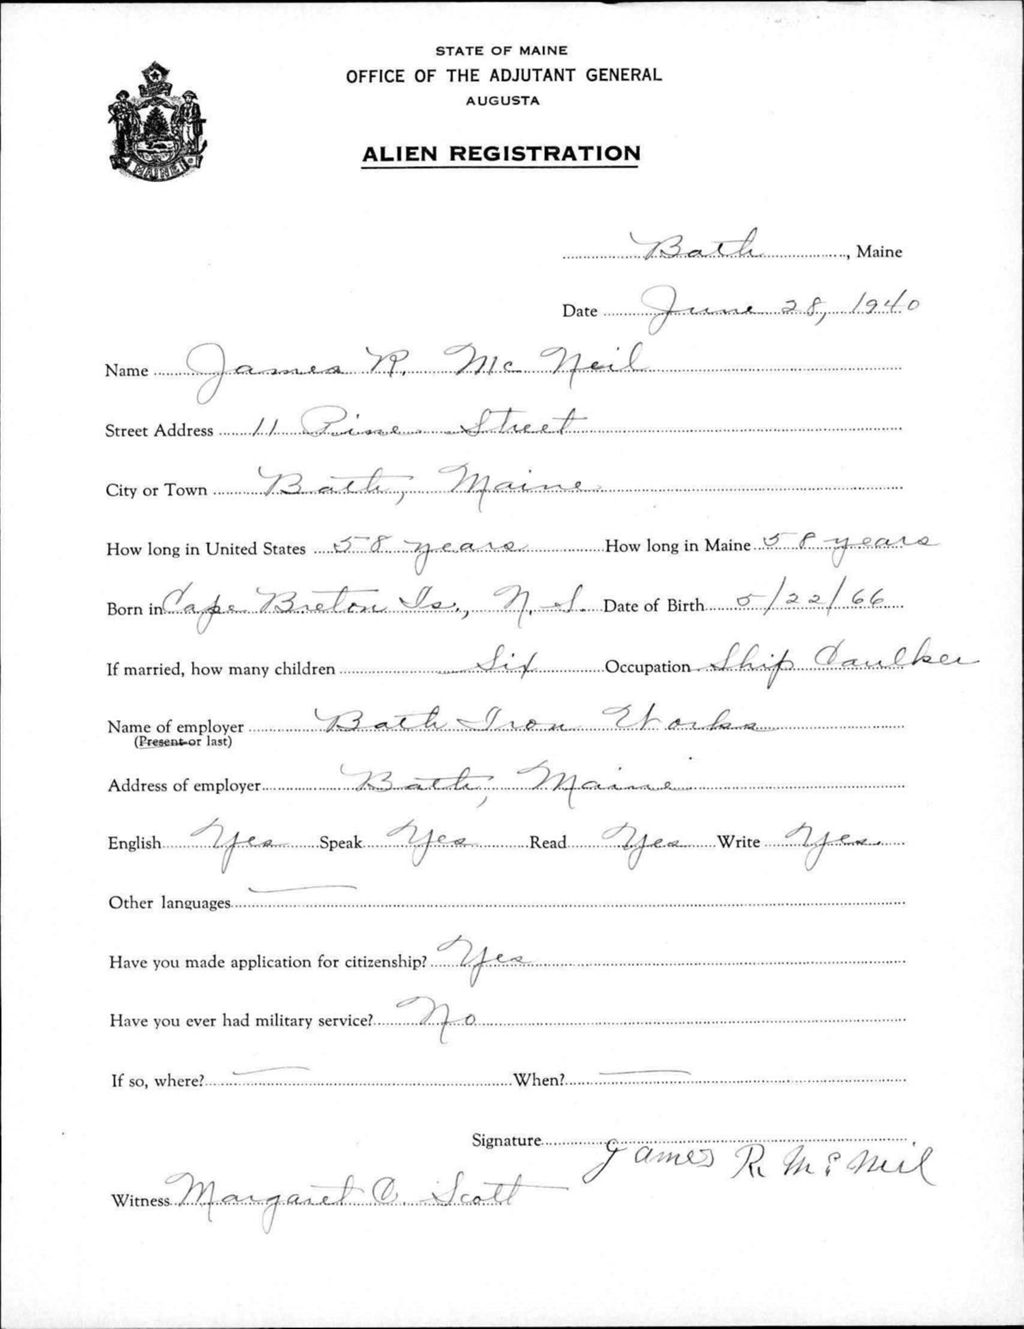 STATE OF MAINE
OFFICE OF THE ADJUTANT GENERAL
AUGUSTA
ALIEN REGISTRATION
MAINE
Bath, Maine
Date June 28, 1940
Name James R. Mc Neil
Street Address 11 Pine Street
City or Town Bath, Maine
How long in United States 58 years How long in Maine 58 years
Born in Cape Breton Is., N.S. Date of Birth 5/22/66
If married, how many children Six Occupation Ship Caulker
Name of employer Bath Iron Works
(Present or last)
Address of employer Bath, Maine
English Yes Speak Yes Read Yes Write Yes.
Other languages —
Have you made application for citizenship? Yes
Have you ever had military service? No
If so, where? — When? —
Signature James R. Mc Neil
Witness Margaret C. Scott